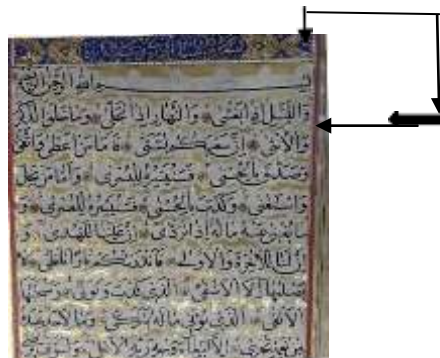 بسم الله الرحمن الرحيم
واليل إذا يغشى والنهار إذا تجلى وما خلق الذكر
والأنثى إن سعيكم لشتى فأما من أعطى واتقى
وصدق بالحسنى فسنيسره لليسرى وأما من بخل
واستغنى وكذب بالحسنى فسنيسره للعسرى و
ما يغني عنه ماله إذا تردى إن علينا للهدى و
إن لنا للآخرة والأولى فأنذرتكم نارا تلظى لا
يصليها إلا الأشقى الذي كذب وتولى وسيجنبها
الأتقى الذي يؤتي ماله يتزكى وما لأحد عنده
من نعمة تجزى إلا ابتغاء وجه ربه الأعلى ولسوف